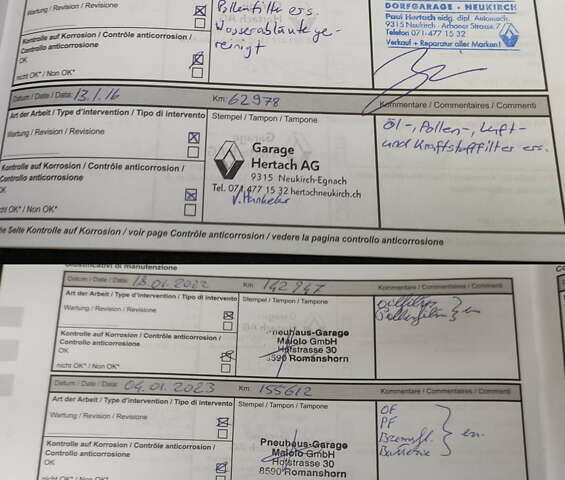 Wartung / Revision / Revisione
Pollenfilter ers.
Wasserabläufe ge-
reinigt
Kontrolle auf Korrosion / Contrôle anticorrosion /
Controllo anticorrosione
OK
nicht OK* / Non OK*
DORFGARAGE - NEUKIRCH
Paul Hertach eidg. dipl. Automech.
9315 Neukirch · Arboner Strasse 7
Telefon 071-477 15 32
Verkauf + Reparatur aller Marken!
Datum / Date / Data: 13.1.16
Km: 62978
Kommentare / Commentaires / Commenti
Art der Arbeit / Type d'intervention / Tipo di intervento
Stempel / Tampon / Tampone
Wartung / Revision / Revisione
Öl-, Pollen-, Luft-
und Kraftstofffilter ers.
Garage
Hertach AG
9315 Neukirch-Egnach
Tel. 071 477 15 32 hertochneukirch.ch
Kontrolle auf Korrosion / Contrôle anticorrosion /
Controllo anticorrosione
OK
nicht OK* / Non OK*
he Seite Kontrolle auf Korrosion / voir page Contrôle anticorrosion / vedere la pagina controllo anticorrosione
Giustificativi di manutenzione
Datum / Date / Data: 13.01.2022
Km: 142947
Kommentare / Commentaires / Commenti
Art der Arbeit / Type d'intervention / Tipo di intervento
Stempel / Tampon / Tampone
Wartung / Revision / Revisione
Ölfilter
Pollenfilter
Kontrolle auf Korrosion / Contrôle anticorrosion /
Controllo anticorrosione
OK
nicht OK* / Non OK*
Pneuhaus-Garage
Maiolo GmbH
Hofstrasse 30
8590 Romanshorn
Datum / Date / Data: 04.01.2023
Km: 155612
Kommentare / Commentaires / Commenti
Art der Arbeit / Type d'intervention / Tipo di intervento
Stempel / Tampon / Tampone
Wartung / Revision / Revisione
OF
PF
Bremsfl.
Batterie
Kontrolle auf Korrosion / Contrôle anticorrosion /
Controllo anticorrosione
OK
nicht OK* / Non OK*
Pneuhaus-Garage
Maiolo GmbH
Hofstrasse 30
8590 Romanshorn